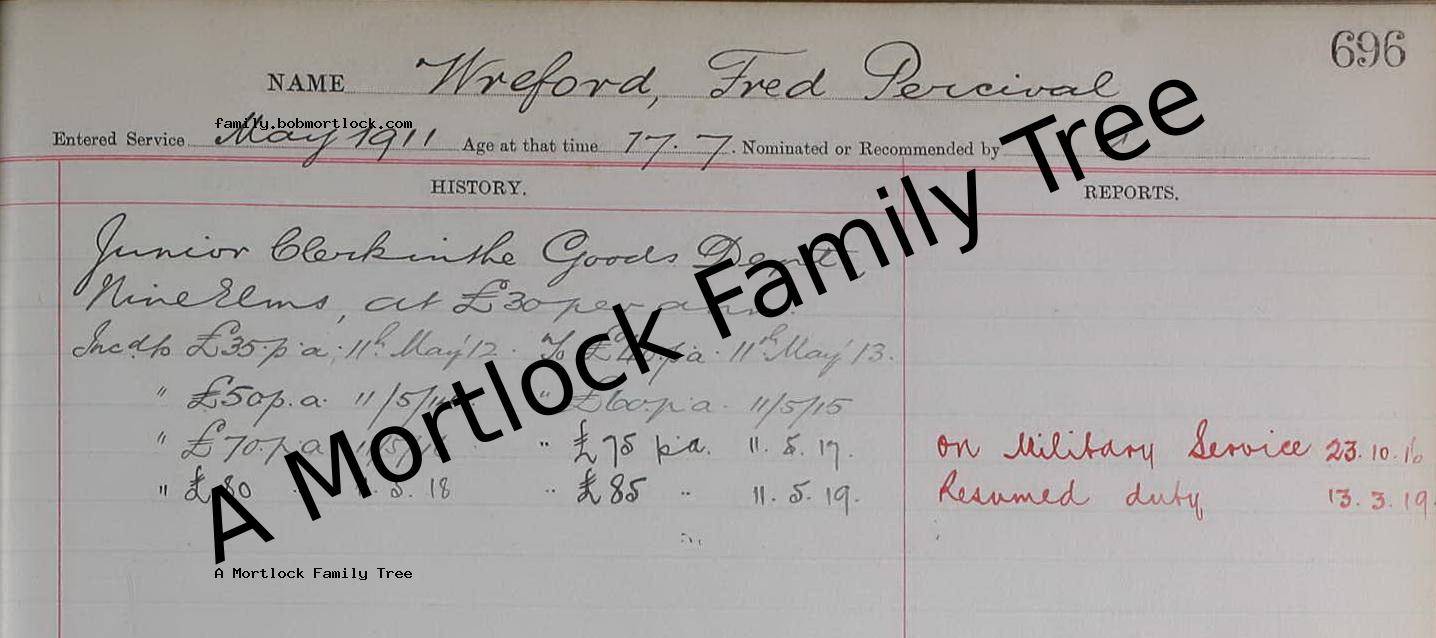 696
NAME Wreford, Fred Percival
family.bobmortlock.com
Entered Service May 1911 Age at that time 17. 7. Nominated or Recommended by
HISTORY. REPORTS.
Junior Clerk in the Goods Dept
Nine Elms, at £30 per ann.
Incd to £35 p.a. 11th May '12. To £40 p.a. 11th May '13.
" £50 p.a. 11/5/14 " £60. p.a. 11/5/15
" £70. p.a. 11/5/16 " £75 p.a. 11. 5. 17. On Military Service 23. 10. 16
" £80 " 11. 5. 18 " £85 " 11. 5. 19. Resumed duty 13. 3. 19.
A Mortlock Family Tree
A Mortlock Family Tree